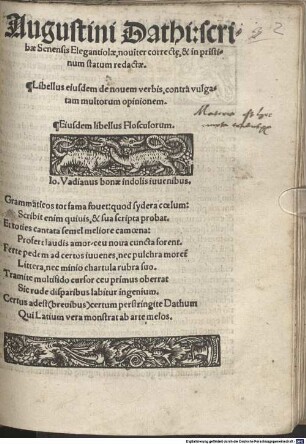 Augustini Dathi: scri-
bæ Senensis Elegantiolæ, nouiter correctę, & in pristi-
num statum redactæ.
¶Libellus eiusdem de nouem verbis, contrà vulga-
tam multorum opinionem.
¶Eiusdem libellus Flosculorum.
Io. Vadianus bonæ indolis iuuenibus.
Grammáticos tot fama fouet: quod sydera cœlum:
Scribit enim quiuis, & sua scripta probat.
Et toties cantata semel meliore camœna:
Profert laudis amor-ceu noua cuncta forent.
Ferte pedem ad certos iuuenes, nec pulchra moretˀ
Littera, nec minio chartula rubra suo.
Tramite multifido cursor ceu primus oberrat
Sic rude disparibus labitur ingenium.
Certus adest (breuibus) certum perstringite Dathum
Qui Latium vera monstrat ab arte melos.
2